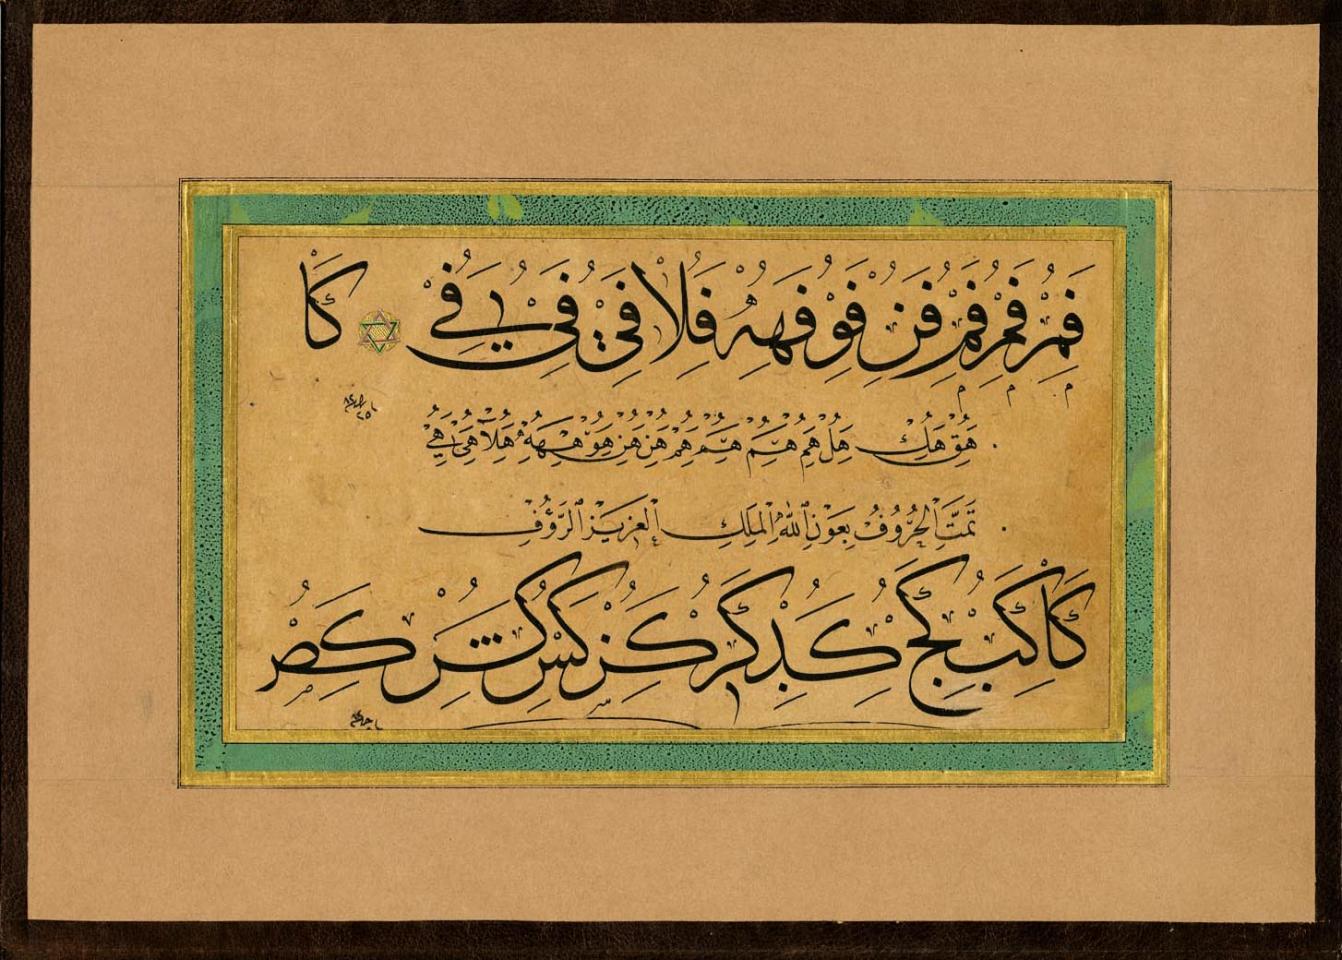 فم فم فم فن فو فه فلا في في فى كا
هق هك هل هم هم هم هم هن هن هو هه هلا هى هي
تَمَّتِ الحُرُوفُ بِعَوْنِ اللهِ المَلِكِ العَزِيزِ الرَّؤُفِ
كا كب كج كد كر كز كس كش كص